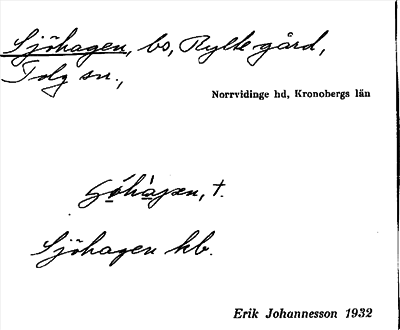 Sjöhagen, bs, Rylke gård,
Tolg sn.,
Norrvidinge hd, Kronobergs län
sǿhàgen, t.
Sjöhagen kb.
Erik Johannesson 1932